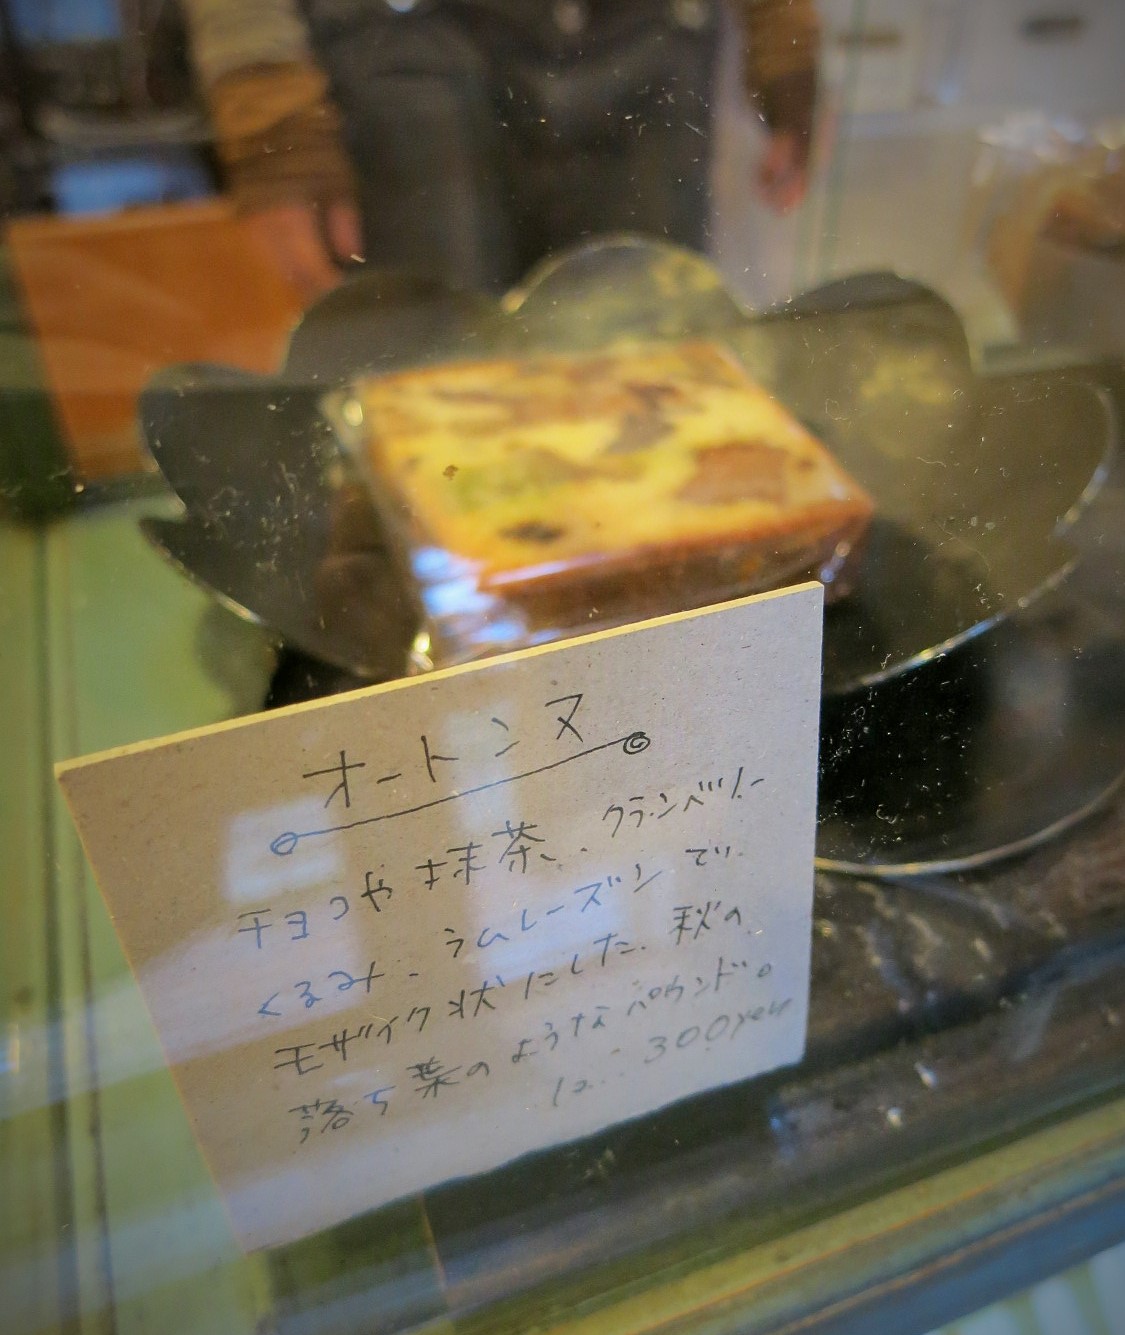 オートンヌ
チョコや抹茶、クランベリー
くるみ・ラムレーズンで
モザイク状にした秋の
落ち葉のようなパウンド。
1コ… 300yen